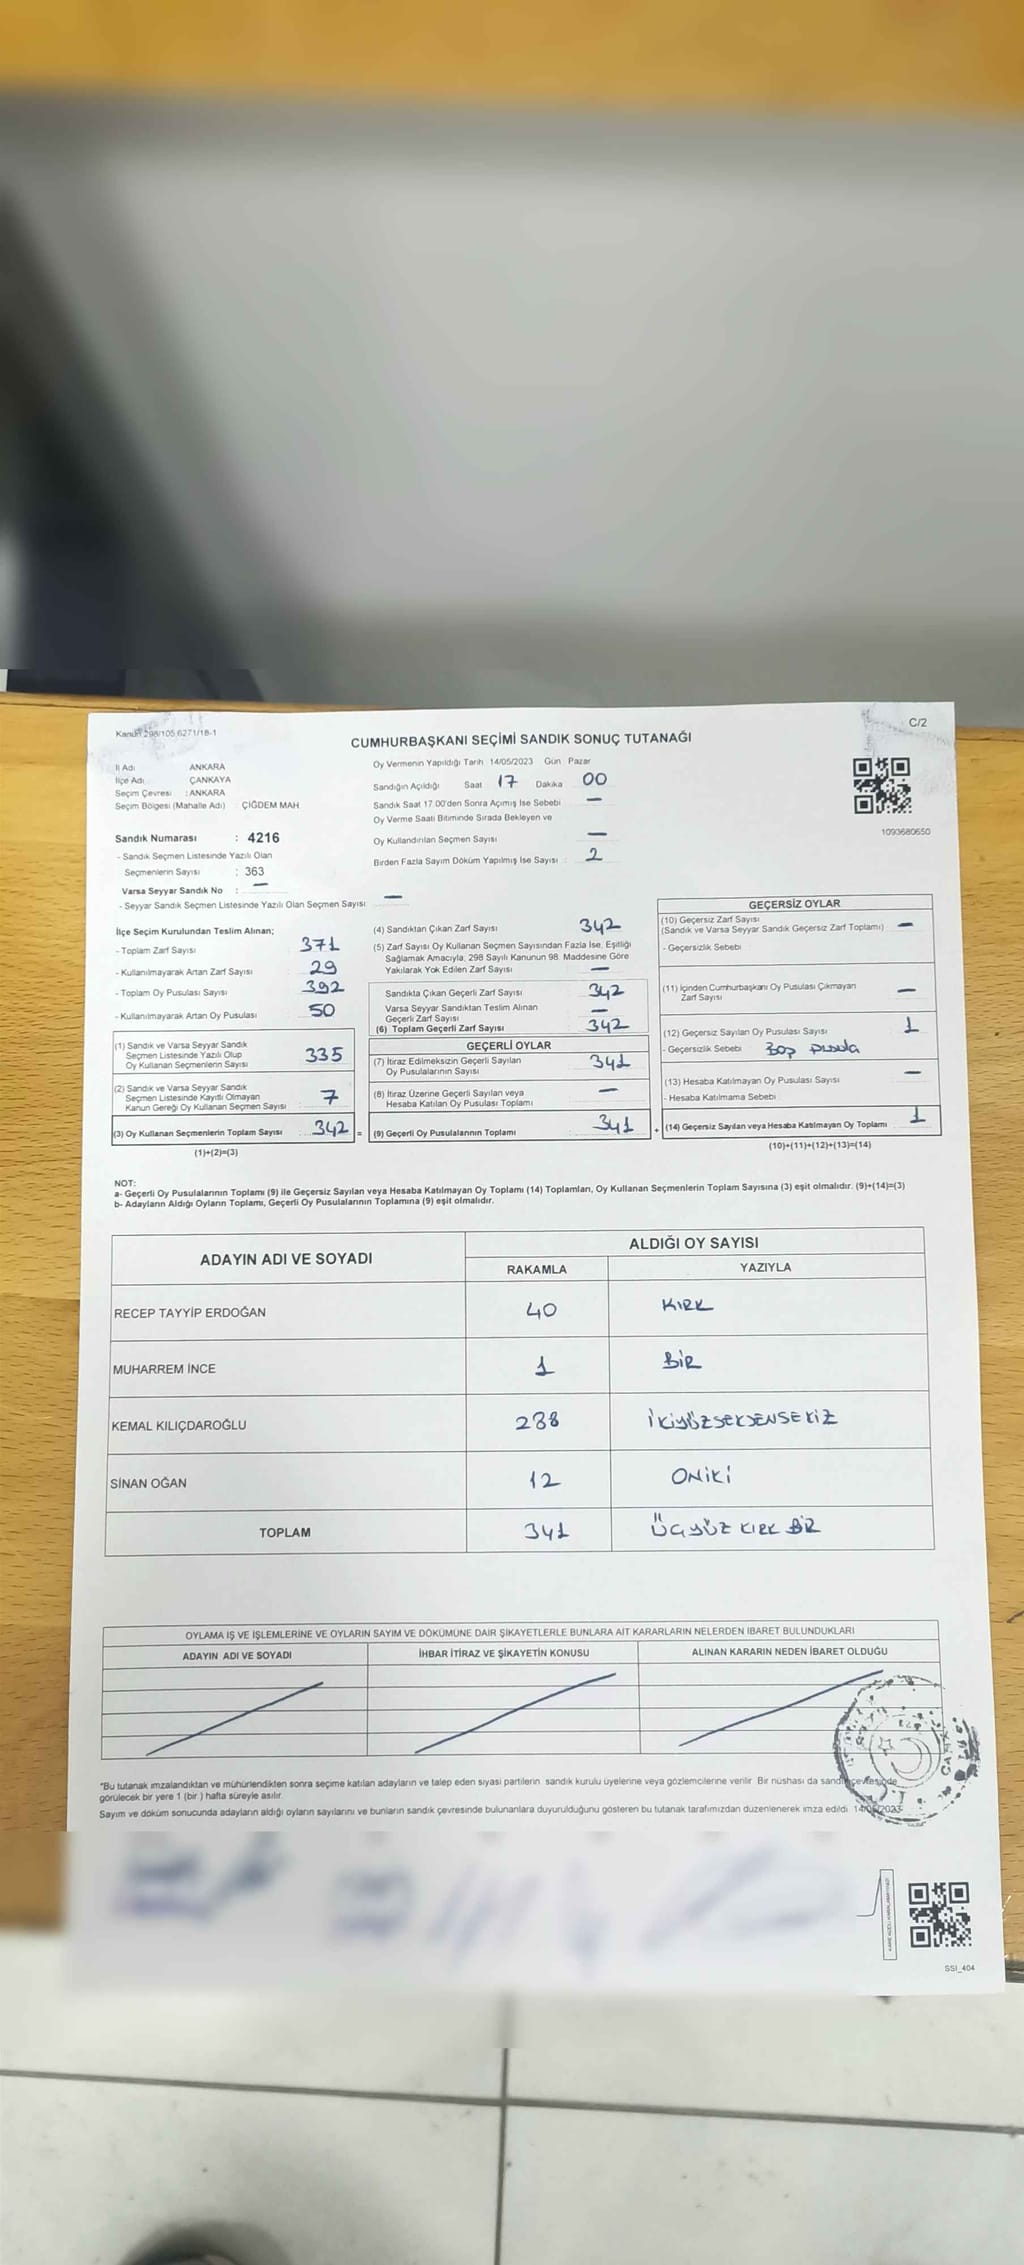 Kanun 298/105,6271/18-1
C/2
CUMHURBAŞKANI SEÇİMİ SANDIK SONUÇ TUTANAĞI
İl Adı ANKARA
İlçe Adı ÇANKAYA
Seçim Çevresi : ANKARA
Seçim Bölgesi (Mahalle Adı) ÇİĞDEM MAH.
Sandık Numarası : 4216
- Sandık Seçmen Listesinde Yazılı Olan
Seçmenlerin Sayısı : 363
Varsa Seyyar Sandık No : —
- Seyyar Sandık Seçmen Listesinde Yazılı Olan Seçmen Sayısı: —
Oy Vermenin Yapıldığı Tarih 14/05/2023 Gün Pazar
Sandığın Açıldığı Saat 17 Dakika 00
Sandık Saat 17:00'den Sonra Açımış İse Sebebi —
Oy Verme Saati Bitiminde Sırada Bekleyen ve
Oy Kullandırılan Seçmen Sayısı —
Birden Fazla Sayım Döküm Yapılmış İse Sayısı : 2
1093680650
İlçe Seçim Kurulundan Teslim Alınan;
- Toplam Zarf Sayısı 371
- Kullanılmayarak Artan Zarf Sayısı 29
- Toplam Oy Pusulası Sayısı 392
- Kullanılmayarak Artan Oy Pusulası 50
(1) Sandık ve Varsa Seyyar Sandık
Seçmen Listesinde Yazılı Olup
Oy Kullanan Seçmenlerin Sayısı 335
(2) Sandık ve Varsa Seyyar Sandık
Seçmen Listesinde Kayıtlı Olmayan
Kanun Gereği Oy Kullanan Seçmen Sayısı 7
(3) Oy Kullanan Seçmenlerin Toplam Sayısı 342 =
(1)+(2)=(3)
(4) Sandıktan Çıkan Zarf Sayısı 342
(5) Zarf Sayısı Oy Kullanan Seçmen Sayısından Fazla İse, Eşitliği
Sağlamak Amacıyla, 298 Sayılı Kanunun 98. Maddesine Göre
Yakılarak Yok Edilen Zarf Sayısı —
Sandıkta Çıkan Geçerli Zarf Sayısı 342
Varsa Seyyar Sandıktan Teslim Alınan
Geçerli Zarf Sayısı —
(6) Toplam Geçerli Zarf Sayısı 342
GEÇERLİ OYLAR
(7) İtiraz Edilmeksizin Geçerli Sayılan
Oy Pusulalarının Sayısı 341
(8) İtiraz Üzerine Geçerli Sayılan veya
Hesaba Katılan Oy Pusulası Toplamı —
(9) Geçerli Oy Pusulalarının Toplamı 341 +
GEÇERSİZ OYLAR
(10) Geçersiz Zarf Sayısı
(Sandık ve Varsa Seyyar Sandık Geçersiz Zarf Toplamı) —
- Geçersizlik Sebebi
(11) İçinden Cumhurbaşkanı Oy Pusulası Çıkmayan
Zarf Sayısı —
(12) Geçersiz Sayılan Oy Pusulası Sayısı 1
- Geçersizlik Sebebi Boş pusula
(13) Hesaba Katılmayan Oy Pusulası Sayısı —
- Hesaba Katılmama Sebebi
(14) Geçersiz Sayılan veya Hesaba Katılmayan Oy Toplamı 1
(10)+(11)+(12)+(13)=(14)
NOT:
a- Geçerli Oy Pusulalarının Toplamı (9) ile Geçersiz Sayılan veya Hesaba Katılmayan Oy Toplamı (14) Toplamları, Oy Kullanan Seçmenlerin Toplam Sayısına (3) eşit olmalıdır. (9)+(14)=(3)
b- Adayların Aldığı Oyların Toplamı, Geçerli Oy Pusulalarının Toplamına (9) eşit olmalıdır.
ADAYIN ADI VE SOYADI ALDIĞI OY SAYISI
RAKAMLA YAZIYLA
RECEP TAYYİP ERDOĞAN 40 KIRK
MUHARREM İNCE 1 BİR
KEMAL KILIÇDAROĞLU 288 İKİYÜZSEKSENSEKİZ
SİNAN OĞAN 12 ONİKİ
TOPLAM 341 ÜÇYÜZ KIRK BİR
OYLAMA İŞ VE İŞLEMLERİNE VE OYLARIN SAYIM VE DÖKÜMÜNE DAİR ŞİKAYETLERLE BUNLARA AİT KARARLARIN NELERDEN İBARET BULUNDUKLARI
ADAYIN ADI VE SOYADI İHBAR İTİRAZ VE ŞİKAYETİN KONUSU ALINAN KARARIN NEDEN İBARET OLDUĞU
*Bu tutanak imzalandıktan ve mühürlendikten sonra seçime katılan adayların ve talep eden siyasi partilerin sandık kurulu üyelerine veya gözlemcilerine verilir. Bir nüshası da sandık çevresinde
görülecek bir yere 1 (bir) hafta süreyle asılır.
Sayım ve döküm sonucunda adayların aldığı oyların sayılarını ve bunların sandık çevresinde bulunanlara duyurulduğunu gösteren bu tutanak tarafımızdan düzenlenerek imza edildi. 14/05/2023
SSI_404